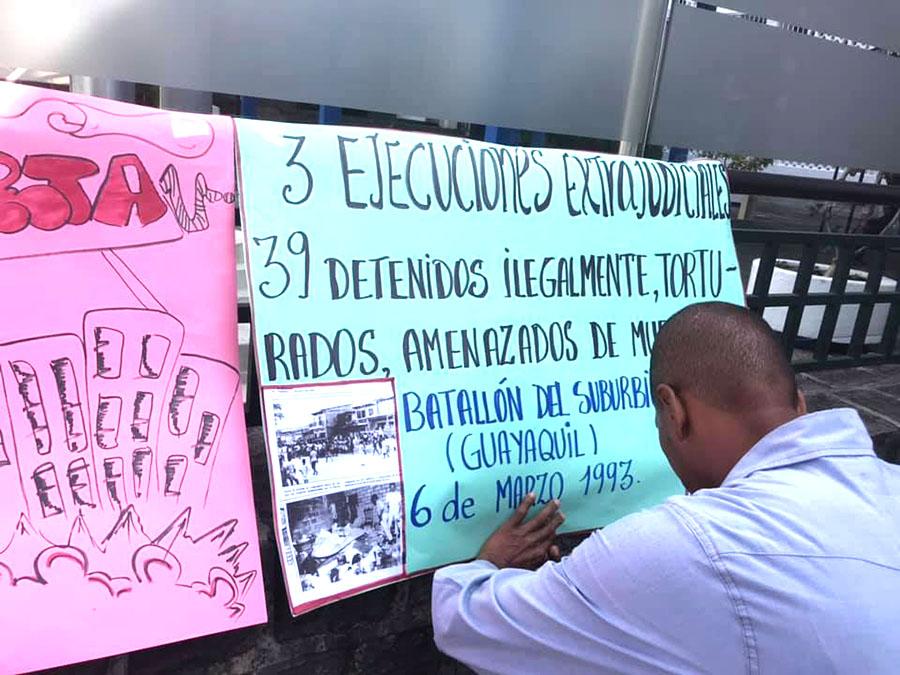 3 EJECUCIONES EXTRAJUDICIALES
39 DETENIDOS ILEGALMENTE, TORTU-
RADOS, AMENAZADOS DE
BATALLÓN DEL
(GUAYAQUIL)
6 de MARZO 1993.